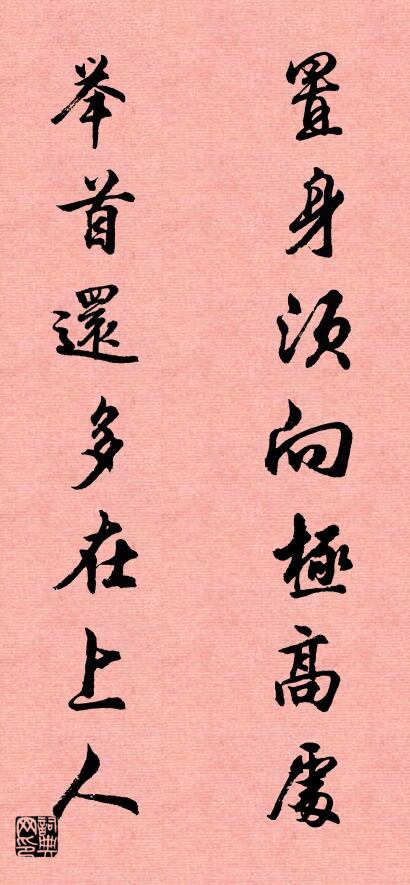 置身須向極高處
举首還多在上人
詞典网印